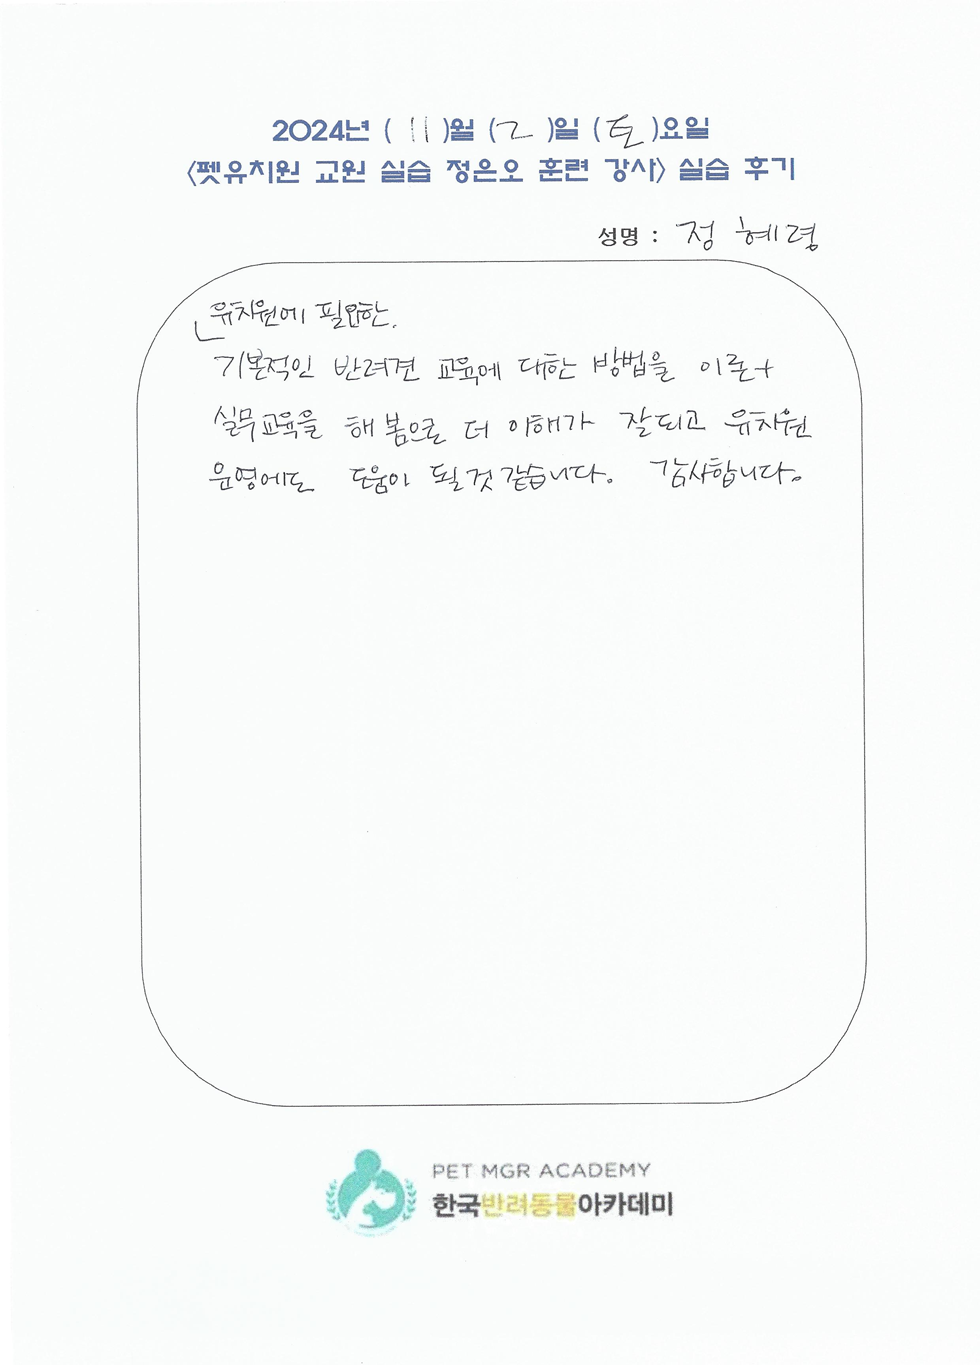 2024년 ( 11 )월 ( 2 )일 ( 토 )요일
<펫유치원 교원 실습 정은오 훈련 강사> 실습 후기
성명 : 정혜령
유치원에 필요한.
기본적인 반려견 교육에 대한 방법을 이론+
실무교육을 해봄으로 더 이해가 잘되고 유치원
운영에도 도움이 될것 같습니다. 감사합니다.
PET MGR ACADEMY
한국반려동물아카데미